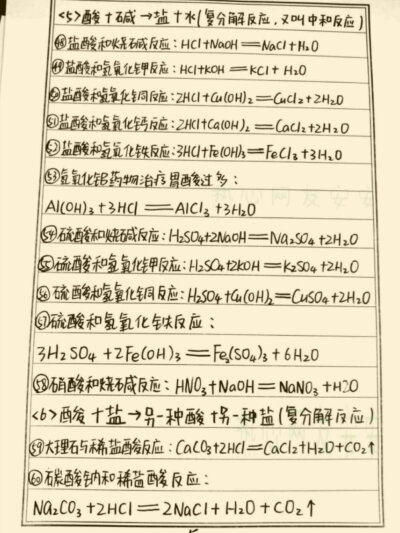 <5>酸十石碱→盐十水(复分解反应,又叫中和反应)
㊽盐酸和烧碱反应:HCl+NaOH=NaCl+H₂O
㊾盐酸和氢氧化钾反应:HCl+KOH=KCl+H₂O
㊿盐酸和氢氧化铜反应:2HCl+Cu(OH)₂=CuCl₂+2H₂O
(51)盐酸和氢氧化钙反应:2HCl+Ca(OH)₂=CaCl₂+2H₂O
(52)盐酸和氢氧化铁反应:3HCl+Fe(OH)₃=FeCl₃+3H₂O
(53)氢氧化铝药物治疗胃酸过多:
Al(OH)₃+3HCl=AlCl₃+3H₂O
(54)硫酸和烧碱反应:H₂SO₄+2NaOH=Na₂SO₄+2H₂O
(55)硫酸和氢氧化钾反应:H₂SO₄+2KOH=K₂SO₄+2H₂O
(56)硫酸和氢氧化铜反应:H₂SO₄+Cu(OH)₂=CuSO₄+2H₂O
(57)硫酸和氢氧化铁反应:
3H₂SO₄+2Fe(OH)₃=Fe₂(SO₄)₃+6H₂O
(58)硝酸和烧碱反应:HNO₃+NaOH=NaNO₃+H2O
<6>酸十盐→另一种酸+另一种盐(复分解反应)
(59)大理石与稀盐酸反应:CaCO₃+2HCl=CaCl₂+H₂O+CO₂↑
(60)碳酸钠和稀盐酸反应:
Na₂CO₃+2HCl=2NaCl+H₂O+CO₂↑